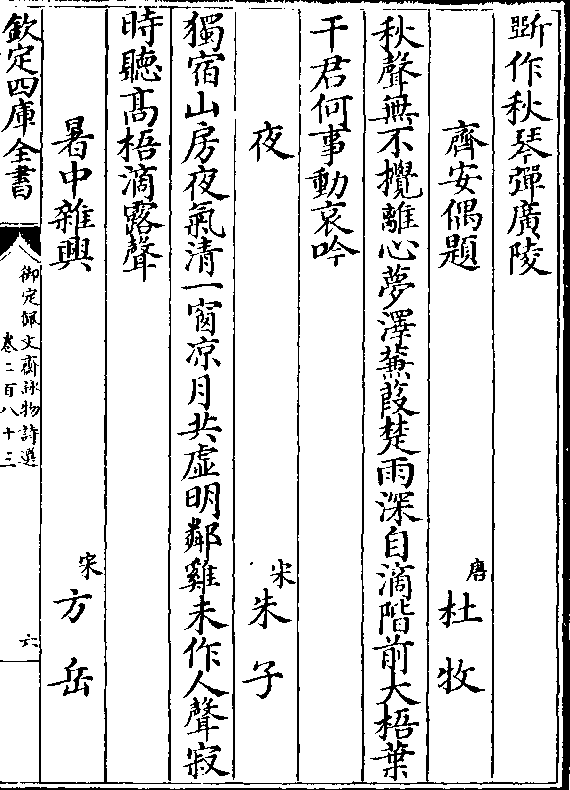 斲作秋琴彈廣陵
齊安偶題
唐
杜牧
秋聲無不攪離心夢澤蒹葭楚雨深自滴階前大梧葉
干君何事動哀吟
夜
宋
朱子
獨宿山房夜氣清一窗凉月共虛明鄰雞未作人聲寂
時聽髙梧滴露聲
暑中雜興
宋
方岳
欽定四庫全書
御定佩文齋詠物詩選
卷二百八十三
六